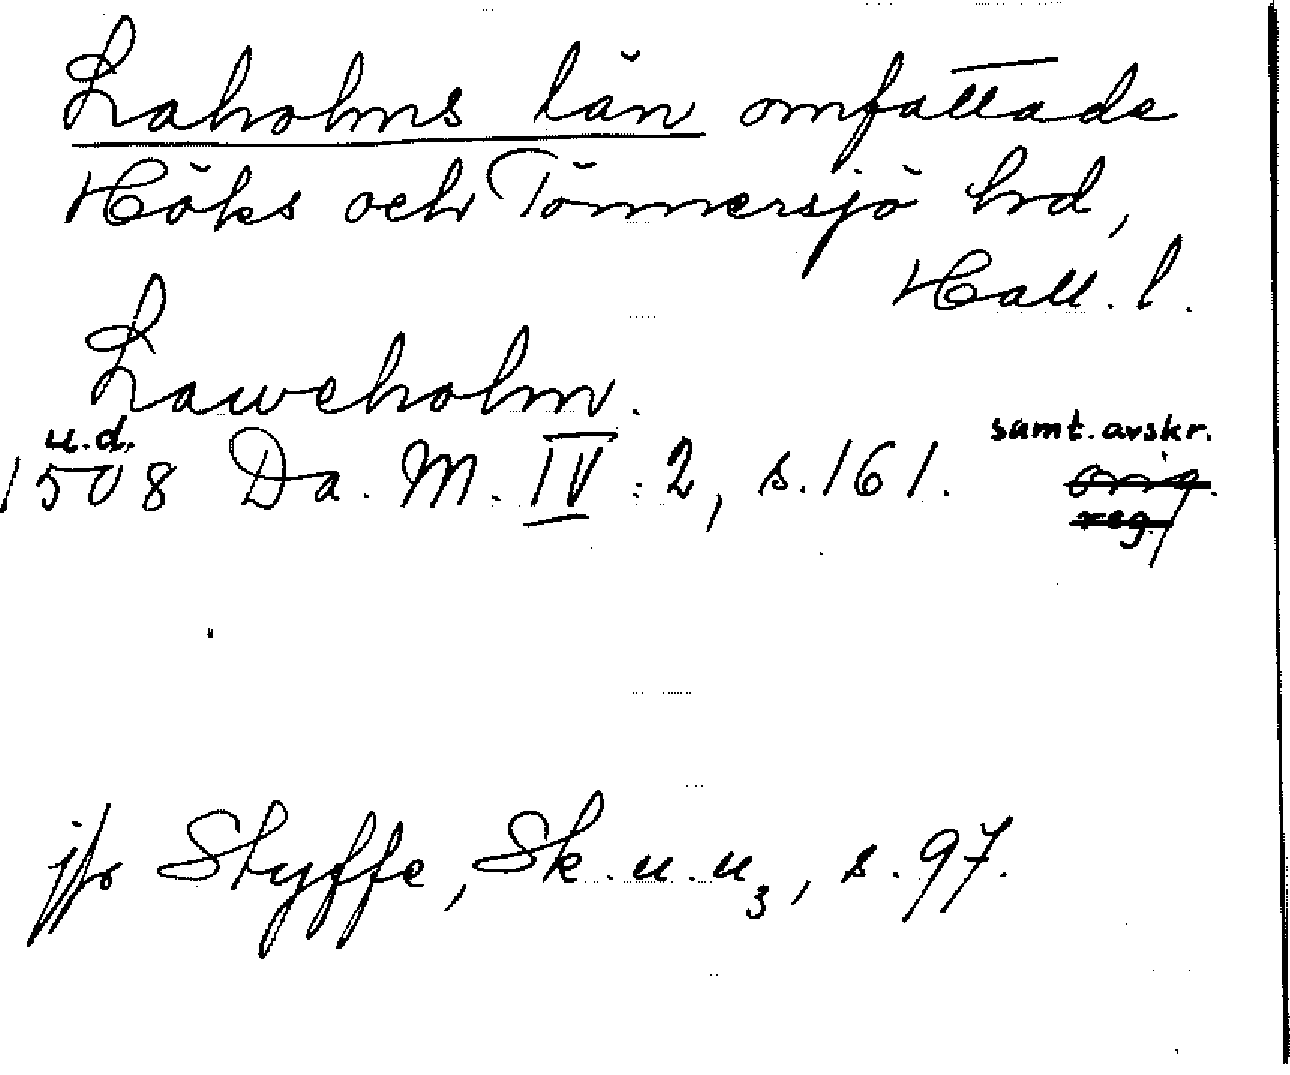 Laholms län omfattade
Höks och Tönnersjö hrd,
Hall. l.
Laweholm.
u.d.
1508 Da. M. IV: 2, s. 161. samt. avskr.
orig.
reg.
jfr Styffe, Sk. u. u3, s. 97.